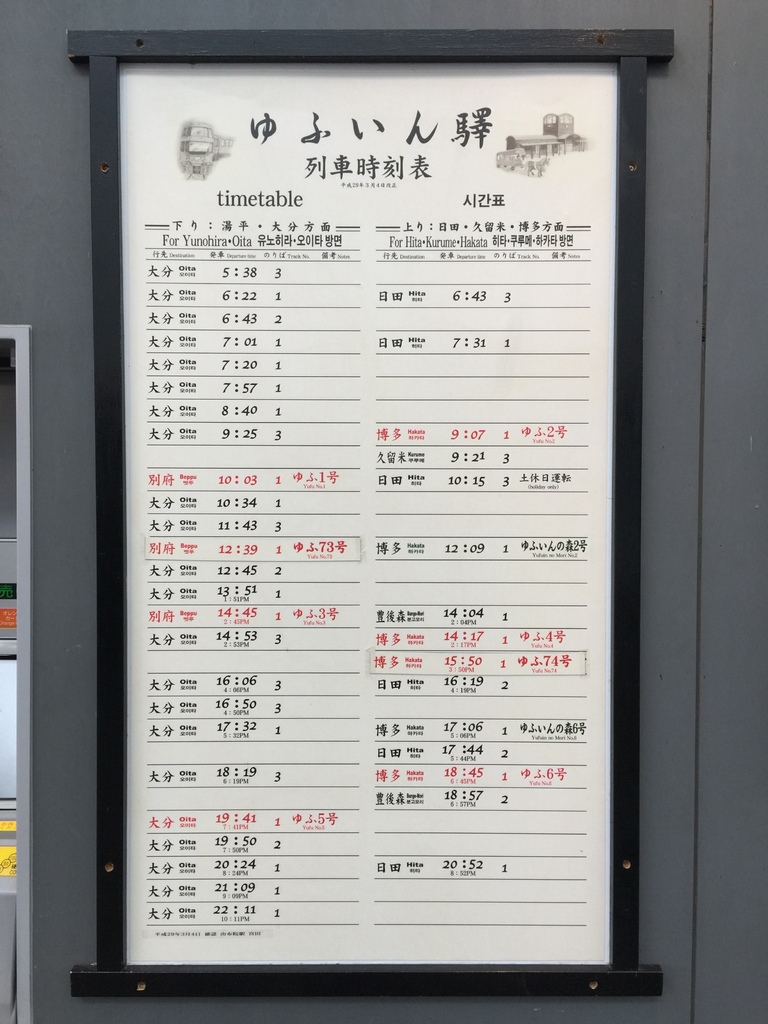 ゆふいん驛
列車時刻表
平成29年3月4日改正
timetable 시간표
下り：湯平・大分方面
For Yunohira・Oita 유노히라・오이타 방면
行先 Destination 発車 Departure time のりば Track No. 備考 Notes
大分 Oita 오이타 5:38 3
大分 Oita 오이타 6:22 1
大分 Oita 오이타 6:43 2
大分 Oita 오이타 7:01 1
大分 Oita 오이타 7:20 1
大分 Oita 오이타 7:57 1
大分 Oita 오이타 8:40 1
大分 Oita 오이타 9:25 3
別府 Beppu 벳푸 10:03 1 ゆふ1号 Yufu No.1
大分 Oita 오이타 10:34 1
大分 Oita 오이타 11:43 3
別府 Beppu 벳푸 12:39 1 ゆふ73号 Yufu No.73
大分 Oita 오이타 12:45 2
大分 Oita 오이타 13:51 1 1:51PM
別府 Beppu 벳푸 14:45 1 ゆふ3号 2:45PM Yufu No.3
大分 Oita 오이타 14:53 3 2:53PM
大分 Oita 오이타 16:06 3 4:06PM
大分 Oita 오이타 16:50 3 4:50PM
大分 Oita 오이타 17:32 1 5:32PM
大分 Oita 오이타 18:19 3 6:19PM
大分 Oita 오이타 19:41 1 ゆふ5号 7:41PM Yufu No.5
大分 Oita 오이타 19:50 2 7:50PM
大分 Oita 오이타 20:24 1 8:24PM
大分 Oita 오이타 21:09 1 9:09PM
大分 Oita 오이타 22:11 1 10:11PM
平成29年3月4日
上り：日田・久留米・博多方面
For Hita・Kurume・Hakata 히타・쿠루메・하카타 방면
行先 Destination 発車 Departure time のりば Track No. 備考 Notes
日田 Hita 히타 6:43 3
日田 Hita 히타 7:31 1
博多 Hakata 하카타 9:07 1 ゆふ2号 Yufu No.2
久留米 Kurume 쿠루메 9:21 3
日田 Hita 히타 10:15 3 土休日運転 (holiday only)
博多 Hakata 하카타 12:09 1 ゆふいんの森2号 Yufuin no Mori No.2
豊後森 Bungo-Mori 분고모리 14:04 1 2:04PM
博多 Hakata 하카타 14:17 1 ゆふ4号 2:17PM Yufu No.4
博多 Hakata 하카타 15:50 1 ゆふ74号 3:50PM Yufu No.74
日田 Hita 히타 16:19 2 4:19PM
博多 Hakata 하카타 17:06 1 ゆふいんの森6号 5:06PM Yufuin no Mori No.6
日田 Hita 히타 17:44 2 5:44PM
博多 Hakata 하카타 18:45 1 ゆふ6号 6:45PM Yufu No.6
豊後森 Bungo-Mori 분고모리 18:57 2 6:57PM
日田 Hita 히타 20:52 1 8:52PM
売